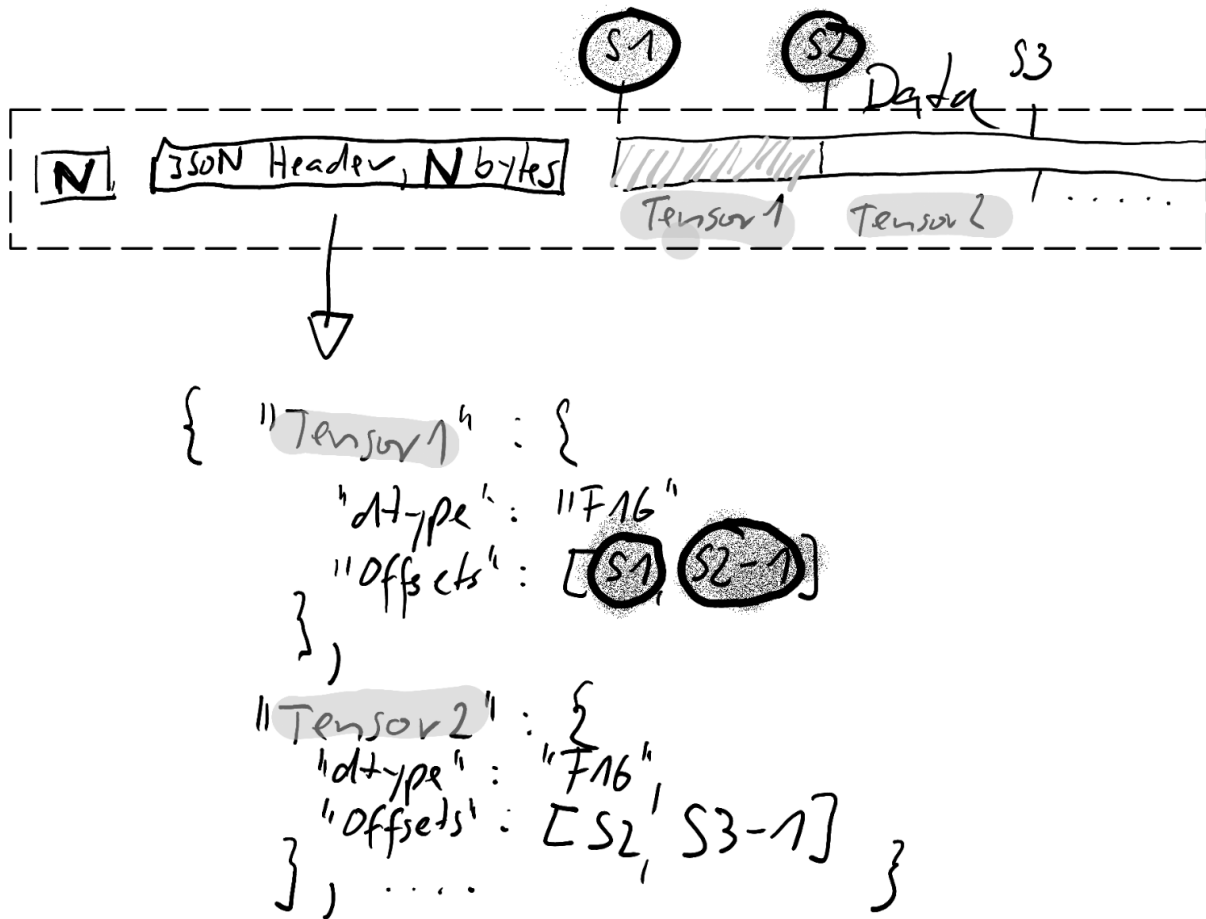 S1 S2 S3
Data
N JSON Header, N bytes
Tensor1 Tensor2 ......
{ "Tensor1" : {
"dtype" : "F16"
"Offsets" : [S1, S2-1]
},
"Tensor2" : {
"dtype" : "F16",
"Offsets" : [S2, S3-1]
}, .... }